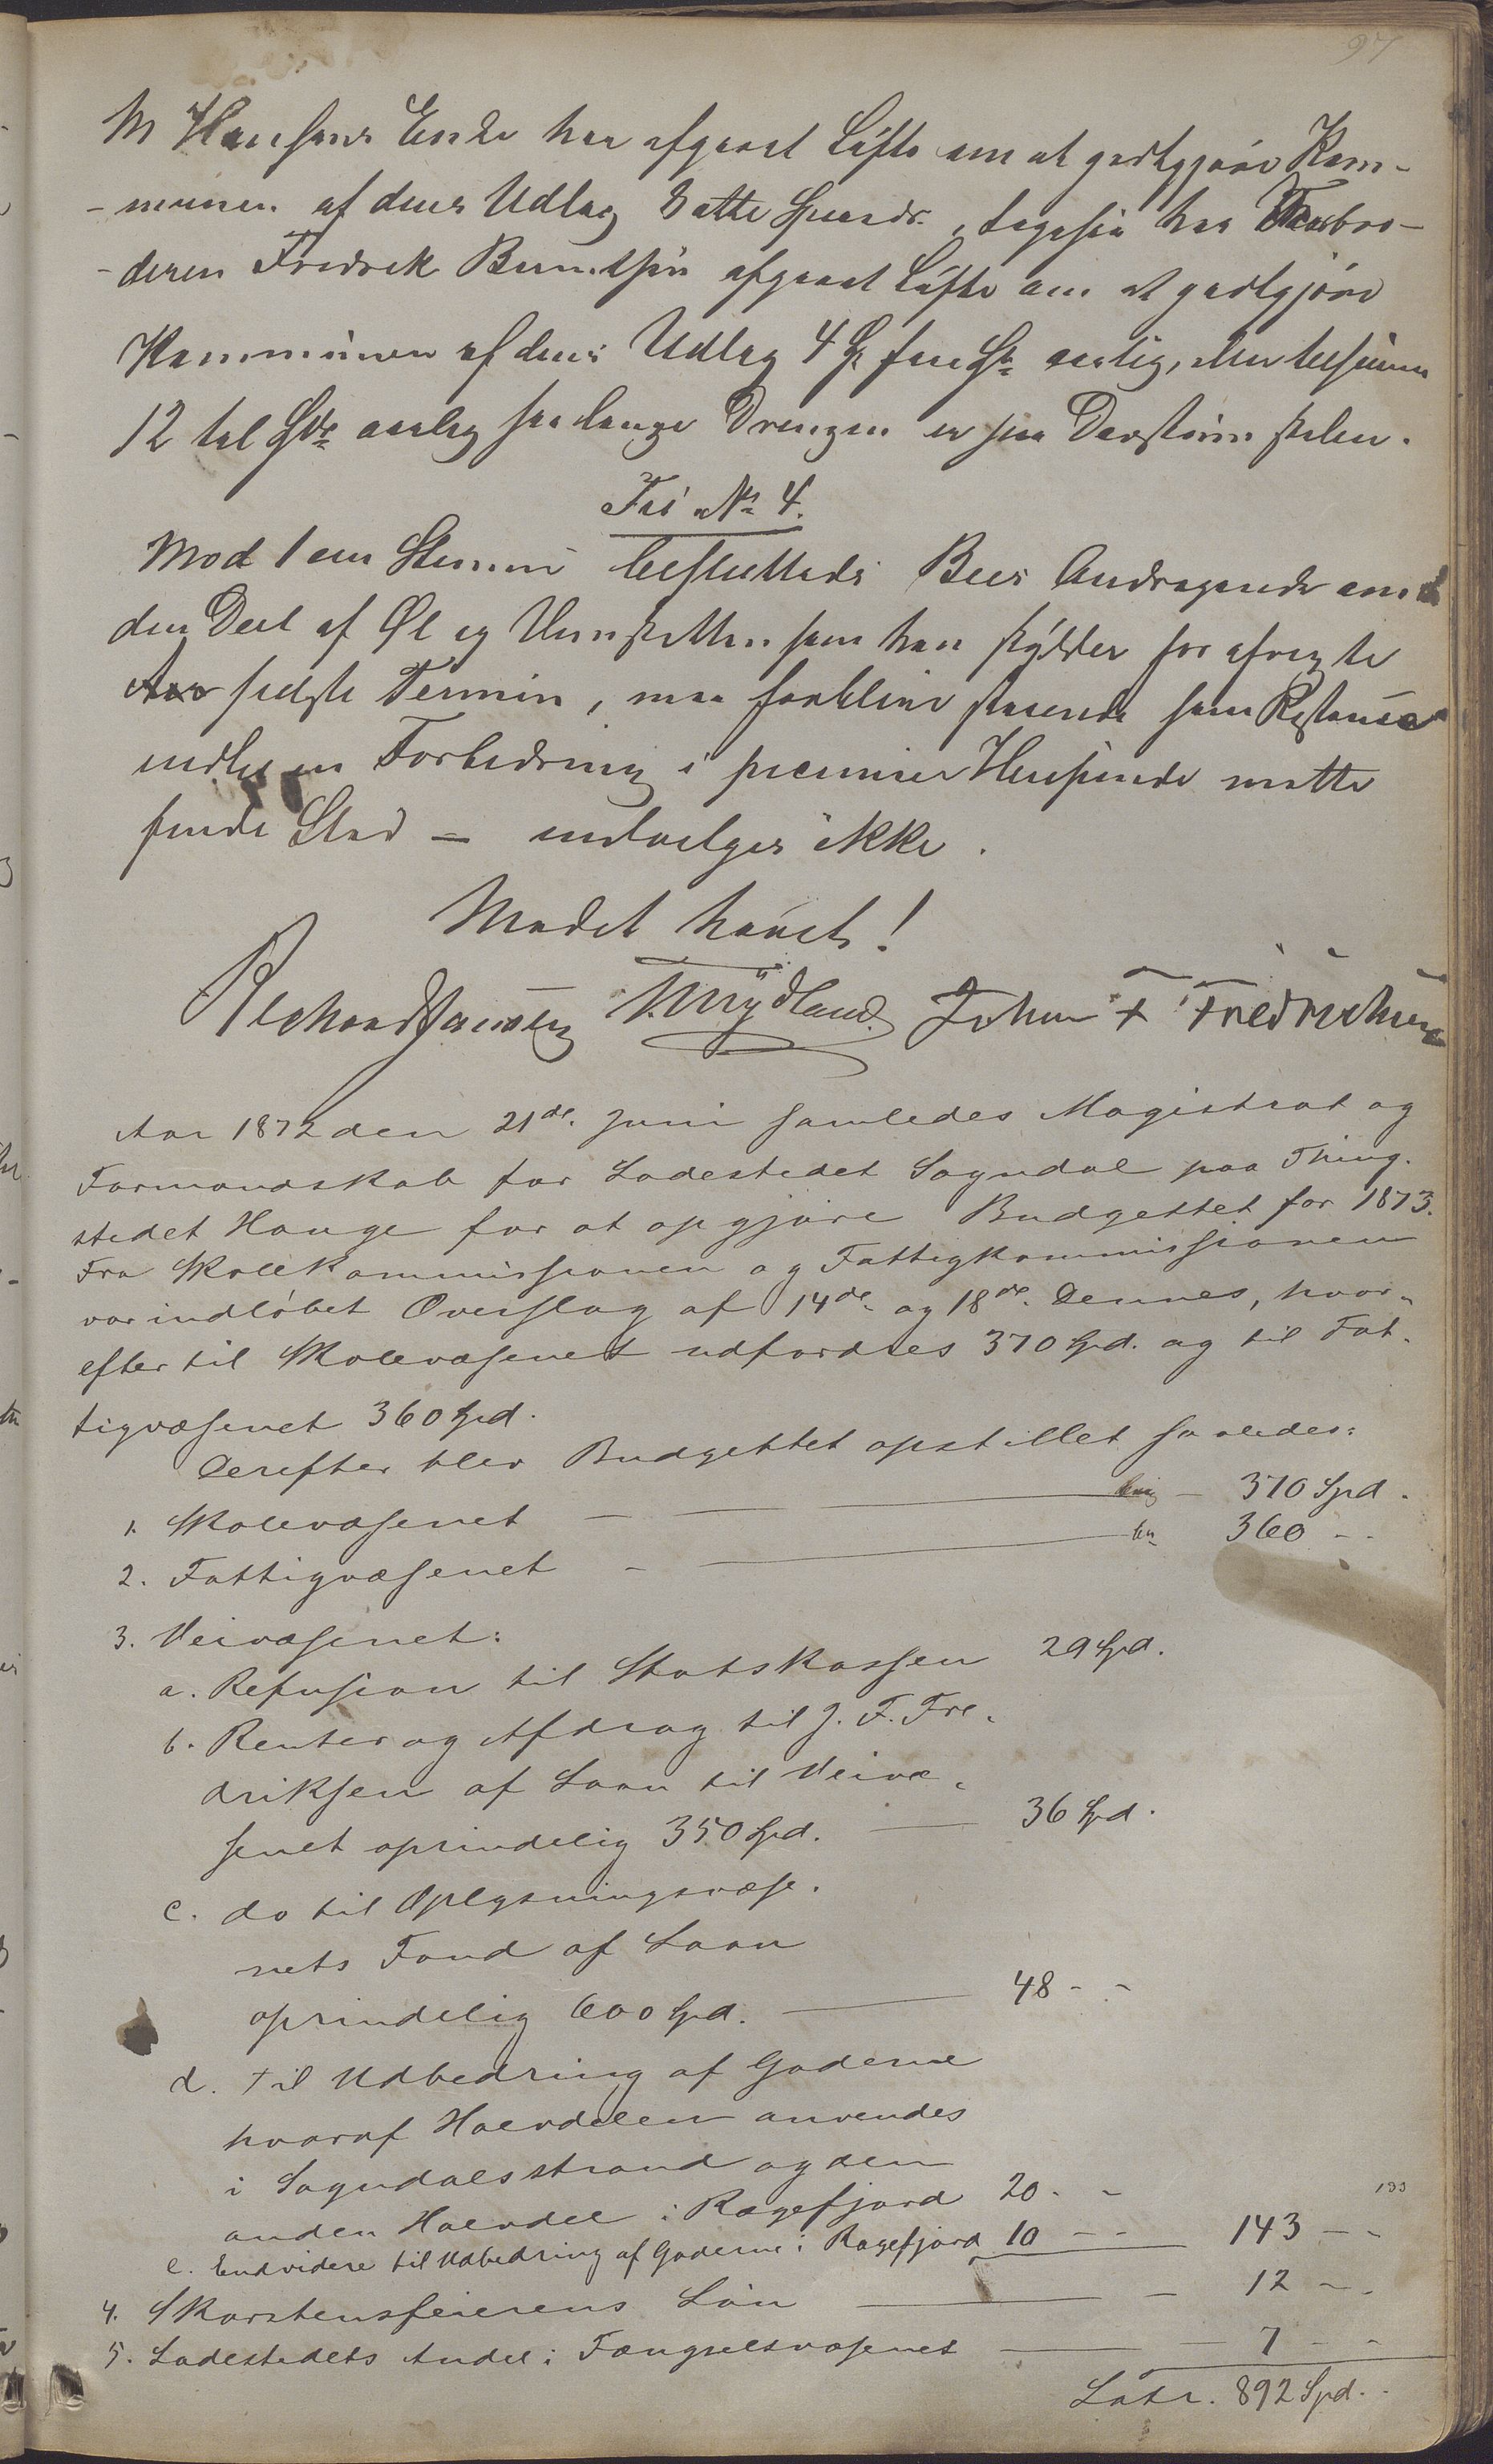 97
M Hansens Enke har afgivet Løfte om at godtgjøre Kom-
-munen af dens Udlag 8 otte Specdr., ligesaa har Farbro-
-deren Fredrek Berntsøn afgivet Løfte om at godtgjøre
Kommunen af dens Udlag 4 Sp fire Sp aarlig, eller tilsammen
12 tol Spdr aarlig saa længe Drengen er paa Døvstumskolen.
Til No 4.
Mod 1 een Stemme besluttedes Andragende om
den Deel af Øl og Viinskatten som han skylder for afvigte
sidste Termin, maa forblive staaende som Restance
indtil en Forbedring i pecuniær Henseende maatte
finde Sted – indvilges ikke.
Mødet hævet!
John F Fredriksen
Aar 1872 den 21de Juni samledes Magistrat og
Formandskab for Ladestedet Sogndal paa Thing-
stedet Hauge for at opgjøre Budgettet for 1873.
Fra Skolekommissionen og Fattigkommissionen
var indløbet Overslag af 14de og 18de Dennes, hvor-
efter til Skolevæsenet udfordres 370 Spd. og til Fat-
tigvæsenet 360 Spd.
Derefter blev Budgettet opstillet saaledes:
1. Skolevæsenet — — 370 Spd.
2. Fattigvæsenet — — 360 - -
3. Veivæsenet:
a. Refusion til Statskassen 29 Spd.
b. Renter og Afdrag til J. F. Fre-
driksen af Laan til Veivæ-
senet oprindelig 350 Spd. — 36 Spd.
c. do til Oplysningsvæse-
nets Fond af Laan
oprindelig 600 Spd. — 48 - -
d. til Udbedring af Gaderne
hvoraf Halvdelen anvendes
i Sogndalsstrand og den
anden Halvdel i Rægefjord 20 - -
133
e. Endvidere til Udbedring af Gaderne i Rægefjord 10 - - — 143 - -
4. Skorstensfeierens Løn — 12 - -
5. Ladestedets Andel i Fængselsvæsenet — 7 - -
Latr. 892 Spd. - -